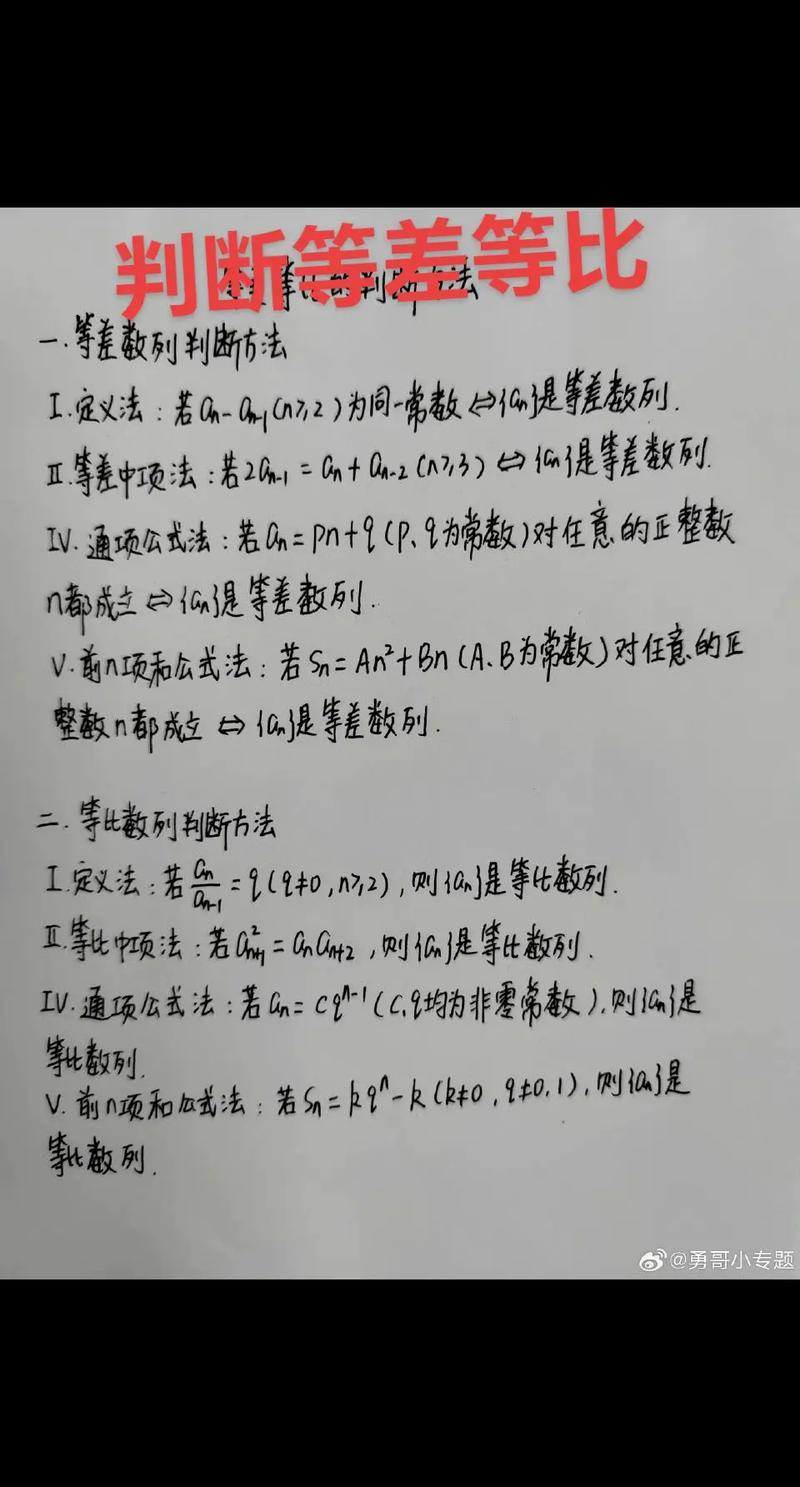 判断等差等比
一.等差数列判断方法
I.定义法：若aₙ-aₙ₋₁(n≥2)为同一常数⇔{aₙ}是等差数列.
II.等差中项法：若2aₙ₋₁=aₙ+aₙ₋₂(n≥3)⇔{aₙ}是等差数列.
IV.通项公式法：若aₙ=pn+q(p、q为常数)对任意的正整数
n都成立⇔{aₙ}是等差数列.
V.前n项和公式法：若Sₙ=An²+Bn(A、B为常数)对任意的正
整数n都成立⇔{aₙ}是等差数列.
二.等比数列判断方法
I.定义法：若aₙ/aₙ₋₁=q(q≠0,n≥2),则{aₙ}是等比数列.
II.等比中项法：若aₙ₊₁²=aₙaₙ₊₂,则{aₙ}是等比数列.
IV.通项公式法：若aₙ=cqⁿ⁻¹(c,q均为非零常数),则{aₙ}是
等比数列.
V.前n项和公式法：若Sₙ=kqⁿ-k(k≠0,q≠0,1),则{aₙ}是
等比数列.
@勇哥小专题